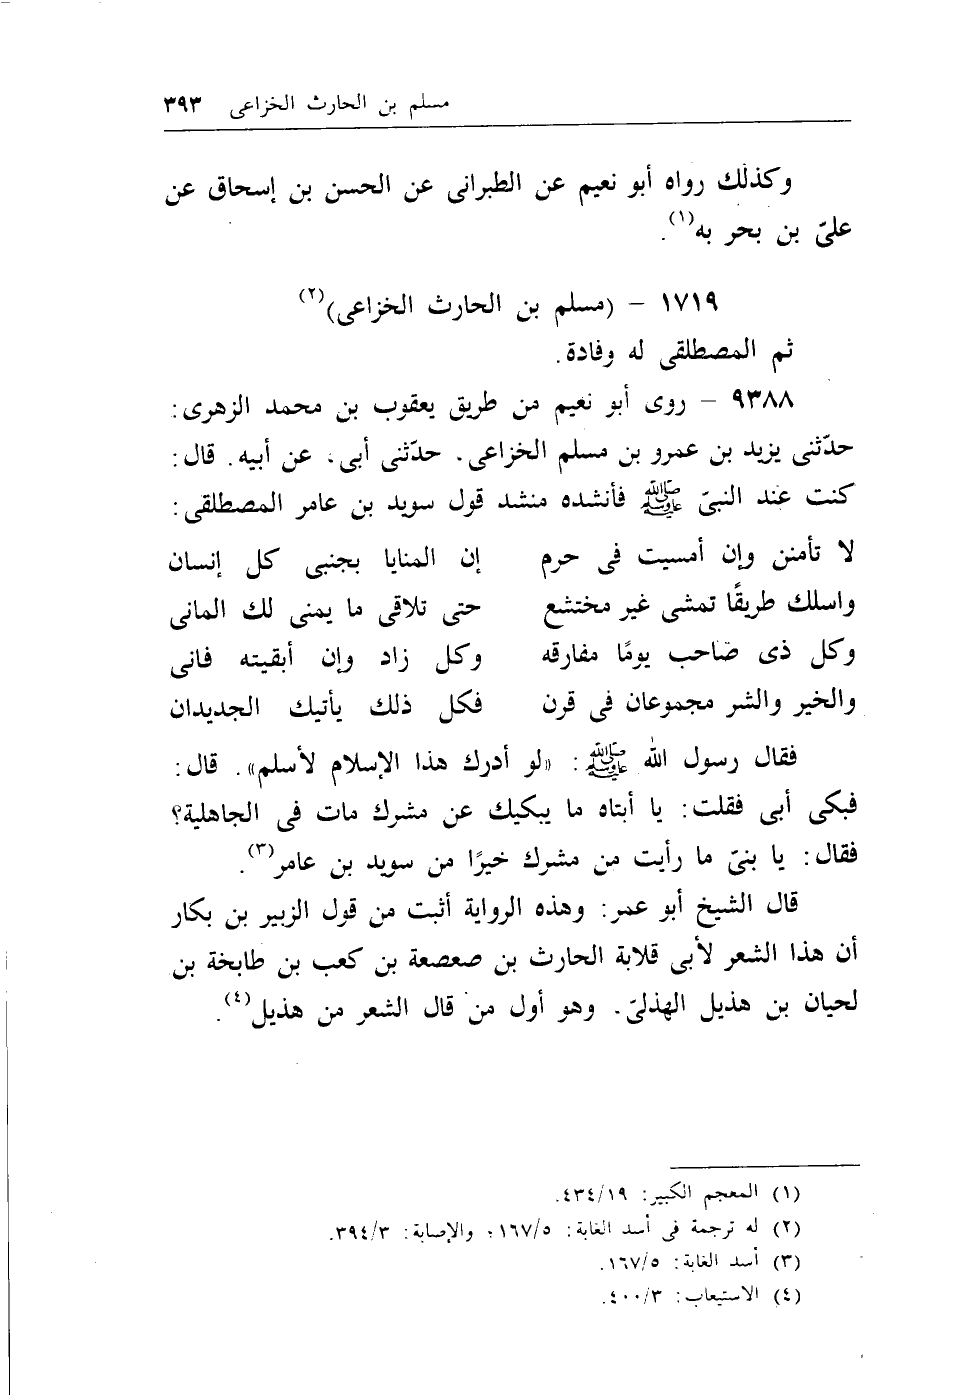 مسلم بن الحارث الخزاعى ٣٩٣
وكذلك رواه أبو نعيم عن الطبرانى عن الحسن بن إسحاق عن
علىّ بن بحر به(١).
١٧١٩ - (مسلم بن الحارث الخزاعى)(٢)
ثم المصطلقى له وفادة.
٩٣٨٨ - روى أبو نعيم من طريق يعقوب بن محمد الزهرى:
حدّثنى يزيد بن عمرو بن مسلم الخزاعى. حدّثنى أبى، عن أبيه. قال:
كنت عند النبىّ ﷺ فأنشده منشد قول سويد بن عامر المصطلقى:
لا تأمنن وإن أمسيت فى حرم إن المنايا بجنبى كل إنسان
واسلك طريقًا تمشى غير مختشع حتى تلاقى ما يمنى لك المانى
وكل ذى صاحب يومًا مفارقه وكل زاد وإن أبقيته فانى
والخير والشر مجموعان فى قرن فكل ذلك يأتيك الجديدان
فقال رسول الله ﷺ: «لو أدرك هذا الإسلام لأسلم». قال:
فبكى أبى فقلت: يا أبتاه ما يبكيك عن مشرك مات فى الجاهلية؟
فقال: يا بنىّ ما رأيت من مشرك خيرًا من سويد بن عامر(٣).
قال الشيخ أبو عمر: وهذه الرواية أثبت من قول الزبير بن بكار
أن هذا الشعر لأبى قلابة الحارث بن صعصعة بن كعب بن طابخة بن
لحيان بن هذيل الهذلىّ. وهو أول من قال الشعر من هذيل(٤).
(١) المعجم الكبير: ٤٣٤/١٩.
(٢) له ترجمة فى أسد الغابة: ١٦٧/٥؛ والإصابة: ٣٩٤/٣.
(٣) أسد الغابة: ١٦٧/٥.
(٤) الاستيعاب: ٤٠٠/٣.